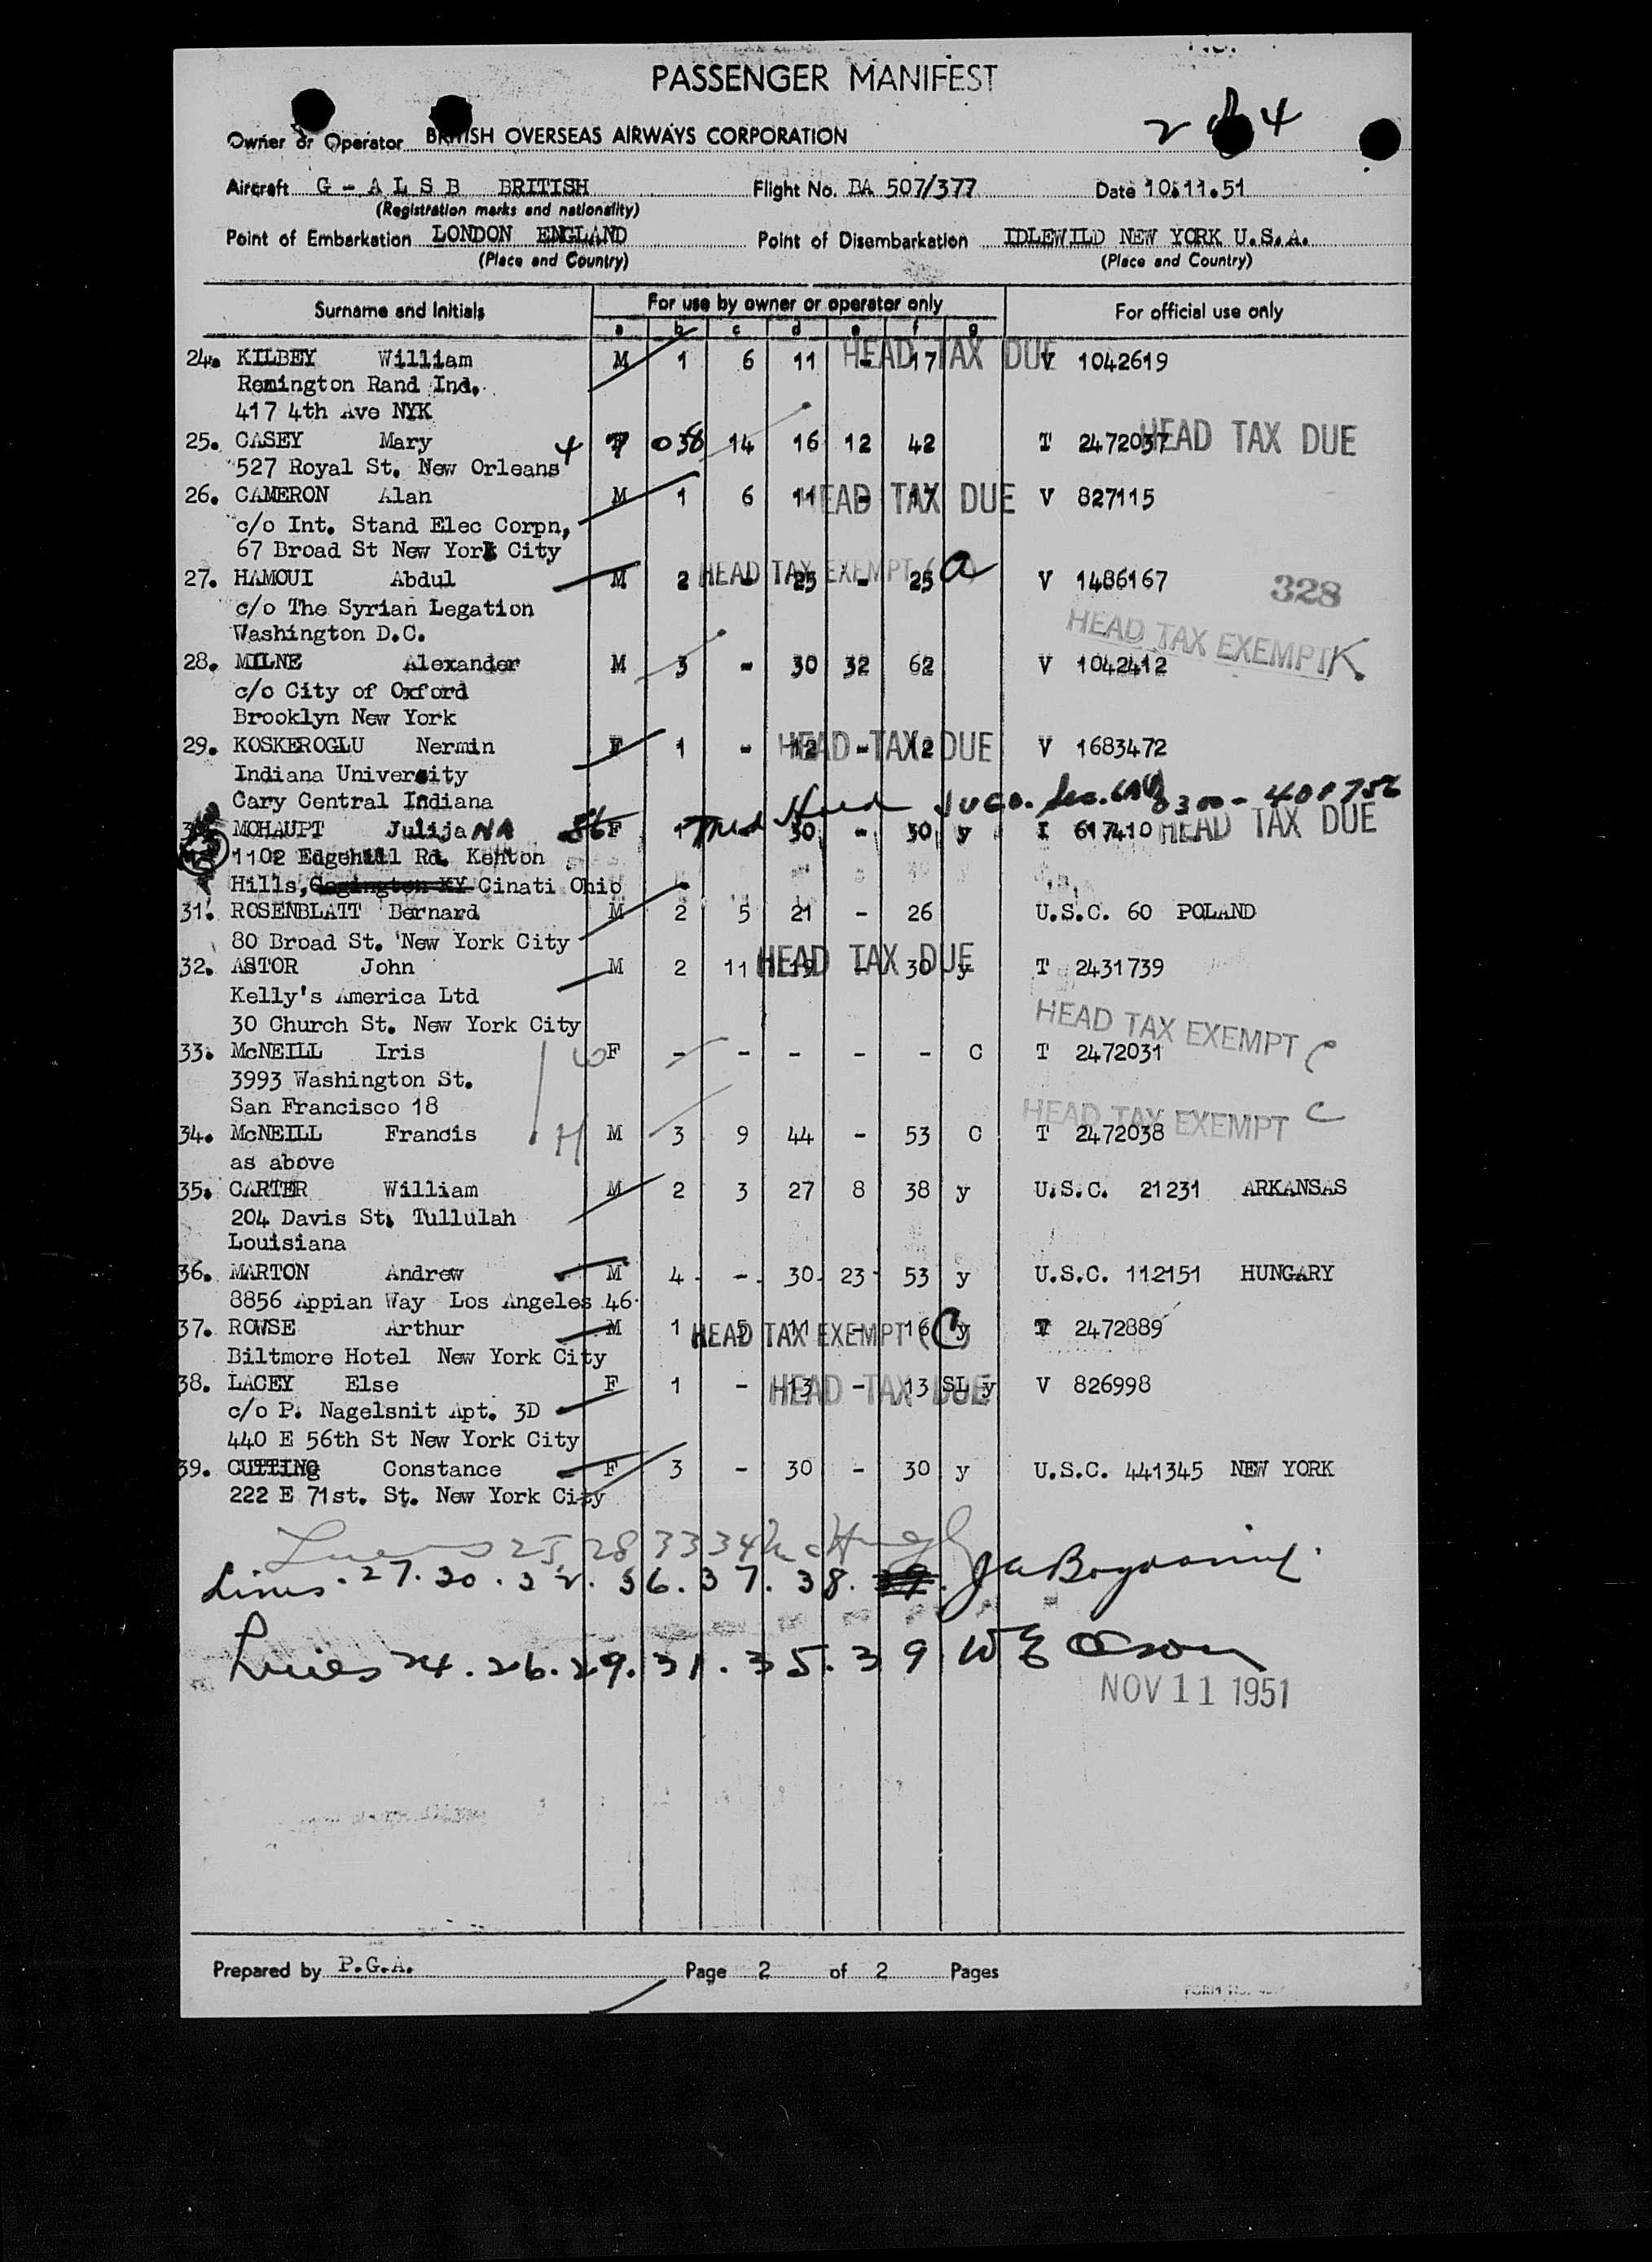 PASSENGER MANIFEST
2 of 4
Owner or Operator BRITISH OVERSEAS AIRWAYS CORPORATION
Aircraft G - A L S B BRITISH Flight No. BA 507/377 Date 10.11.51
(Registration marks and nationality)
Point of Embarkation LONDON ENGLAND Point of Disembarkation IDLEWILD NEW YORK U.S.A.
(Place and Country) (Place and Country)
Surname and Initials For use by owner or operator only For official use only
a b c d e f g
24. KILBEY William M 1 6 11 - 17 HEAD TAX DUE V 1042619
Remington Rand Ind.
417 4th Ave NYK
25. CASEY Mary 4 F 038 14 16 12 42 T 2472037 HEAD TAX DUE
527 Royal St. New Orleans
26. CAMERON Alan M 1 6 11 - 17 HEAD TAX DUE V 827115
c/o Int. Stand Elec Corpn,
67 Broad St New York City
27. HAMOUI Abdul M 2 - 25 - 25 HEAD TAX EXEMPT (a) V 1486167 328
c/o The Syrian Legation
Washington D.C.
HEAD TAX EXEMPT K
28. MILNE Alexander M 3 - 30 32 62 V 1042412
c/o City of Oxford
Brooklyn New York
29. KOSKEROGLU Nermin F 1 - 12 - 12 HEAD TAX DUE V 1683472
Indiana University
Cary Central Indiana
Head JUGO. 0300-401756
30. MOHAUPT Julija NA 56 F 1 - 30 - 30 y I 617410 HEAD TAX DUE
1102 Edgehill Rd. Kenton
Hills, Cogington KY Cinati Ohio
31. ROSENBLATT Bernard M 2 5 21 - 26 U.S.C. 60 POLAND
80 Broad St. New York City
32. ASTOR John M 2 11 19 - 30 y HEAD TAX DUE T 2431739
Kelly's America Ltd
30 Church St. New York City
HEAD TAX EXEMPT C
33. McNEILL Iris W F - - - - - C T 2472031
3993 Washington St.
San Francisco 18
HEAD TAX EXEMPT C
34. McNEILL Francis H M 3 9 44 - 53 C T 2472038
as above
35. CARTER William M 2 3 27 8 38 y U.S.C. 21231 ARKANSAS
204 Davis St. Tullulah
Louisiana
36. MARTON Andrew M 4 - 30 23 53 y U.S.C. 112151 HUNGARY
8856 Appian Way Los Angeles 46
37. ROWSE Arthur M 1 5 11 - 16 y HEAD TAX EXEMPT (C) T 2472889
Biltmore Hotel New York City
38. LACEY Else F 1 - 13 - 13 SL y HEAD TAX DUE V 826998
c/o P. Nagelsnit Apt. 3D
440 E 56th St New York City
39. CUTTING Constance F 3 - 30 - 30 y U.S.C. 441345 NEW YORK
222 E 71st. St. New York City
Lines 25 28 33 34
Lines. 27. 30. 32. 36. 37. 38. 39.
Lines 24. 26. 29. 31. 35. 39 W E Olson
NOV 11 1951
Prepared by P.G.A. Page 2 of 2 Pages